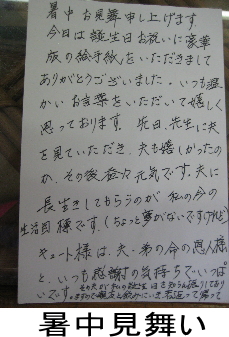 暑中お見舞申し上げます
今日は誕生日お祝いに豪華
版の絵手紙をいただきまして
ありがとうございました。いつも温
かいお言葉をいただいて嬉しく
思っております。先日、先生に夫
を見ていただき、夫も嬉しかったの
か、その後益々元気です。夫に
長生きしてもらうのが私の今の
生活目標です（ちょっと夢がないですけれど）
キュート様は、夫・弟の命の恩人様
と、いつも感謝の気持ちでいっぱ
いです。
暑中見舞い